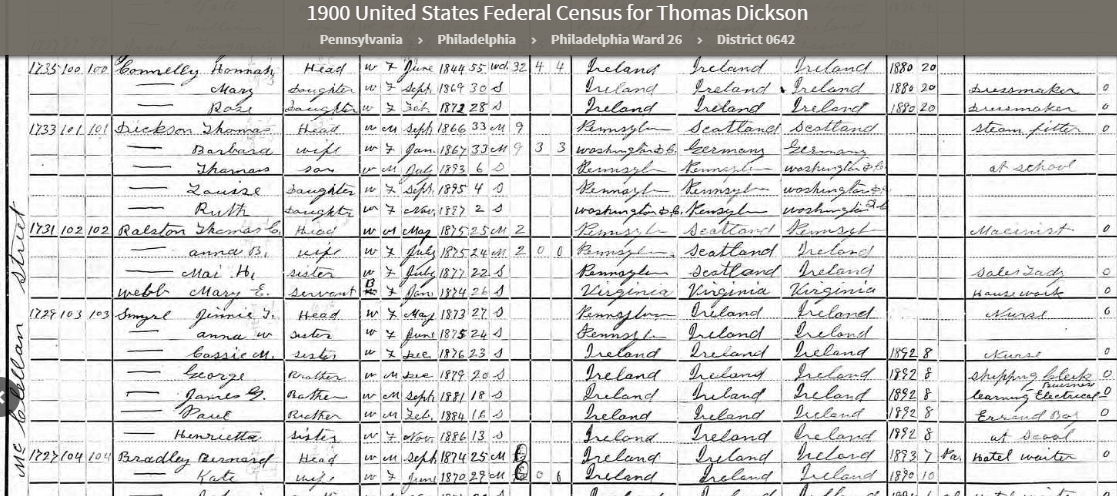 1900 United States Federal Census for Thomas Dickson
Pennsylvania > Philadelphia > Philadelphia Ward 26 > District 0642
1735 100 100 Connelly Hannah Head W F June 1844 55 Wd 32 4 4 Ireland Ireland Ireland 1880 20
— Mary Daughter W F Sept 1869 30 S Ireland Ireland Ireland 1880 20 Dressmaker 0
— Rose Daughter W F Feb 1872 28 S Ireland Ireland Ireland 1880 20 Dressmaker 0
1733 101 101 Dickson Thomas Head W M Sept 1866 33 M 9 Pennsylv Scotland Scotland Steam fitter 0
— Barbara Wife W F Jan 1867 33 M 9 3 3 Washington D.C. Germany Germany
— Thomas Son W M July 1893 6 S Pennsylv Pennsylv Washington D.C. at school
— Louise Daughter W F Sept 1895 4 S Pennsylv Pennsylv Washington D.C.
— Ruth Daughter W F Nov 1897 2 S Washington D.C. Pennsylv Washington D.C.
1731 102 102 Ralston Thomas C. Head W M May 1875 25 M 2 Pennsylv Scotland Pennsylv Macinist 0
— Anna B. Wife W F July 1875 24 M 2 0 0 Pennsylv Scotland Ireland
— Mai H. Sister W F July 1877 22 S Pennsylv Scotland Ireland Sales Lady 0
Webb Mary E. Servant B F Jan 1874 26 S Virginia Virginia Virginia House work 0
1729 103 103 Smyrl Jinnie T. Head W F May 1873 27 S Pennsylv Ireland Ireland Nurse 0
— Anna W Sister W F June 1875 24 S Pennsylv Ireland Ireland
— Cassie M. Sister W F Dec 1876 23 S Ireland Ireland Ireland 1892 8 Nurse 0
— George Brother W M Dec 1879 20 S Ireland Ireland Ireland 1892 8 Shipping Clerk 0
— James G. Brother W M Sept 1881 18 S Ireland Ireland Ireland 1892 8 learning Electrical Business 0
— Paul Brother W M Feb 1884 16 S Ireland Ireland Ireland 1892 8 Errand Boy 0
— Henrietta Sister W F Nov 1886 13 S Ireland Ireland Ireland 1892 8 at Scool 0
1727 104 104 Bradley Bernard Head W M Sept 1874 25 M Ireland Ireland Ireland 1893 7 Pa Hotel waiter 0
— Kate Wife W F June 1870 29 M 0 Ireland Ireland Ireland 1890 10
Mc Clellan Street